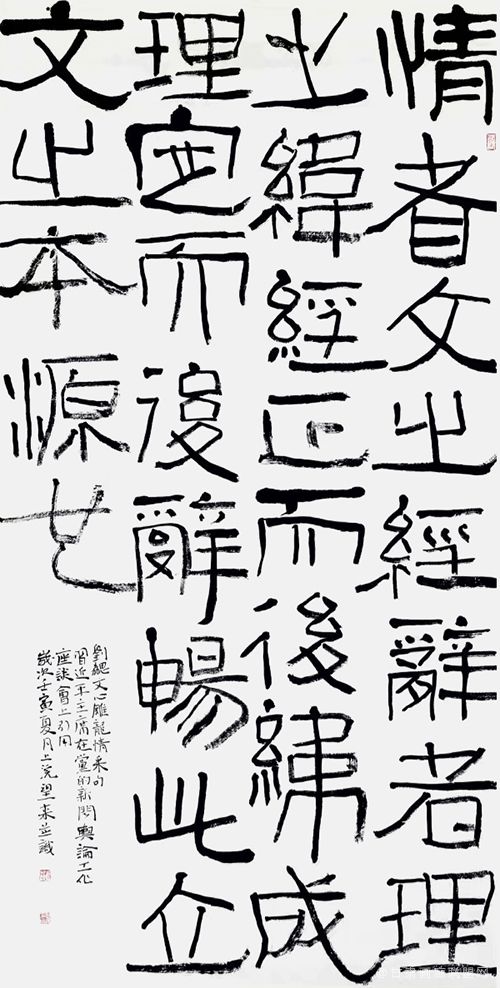 情者文之經辭者理
之緯經正而後緯成
理定而後辭暢此立
文之本源也
劉勰文心雕龍情采句
習近平主席在黨的新聞輿論工作
座談會上引用
歲次壬寅夏月上浣望来並識